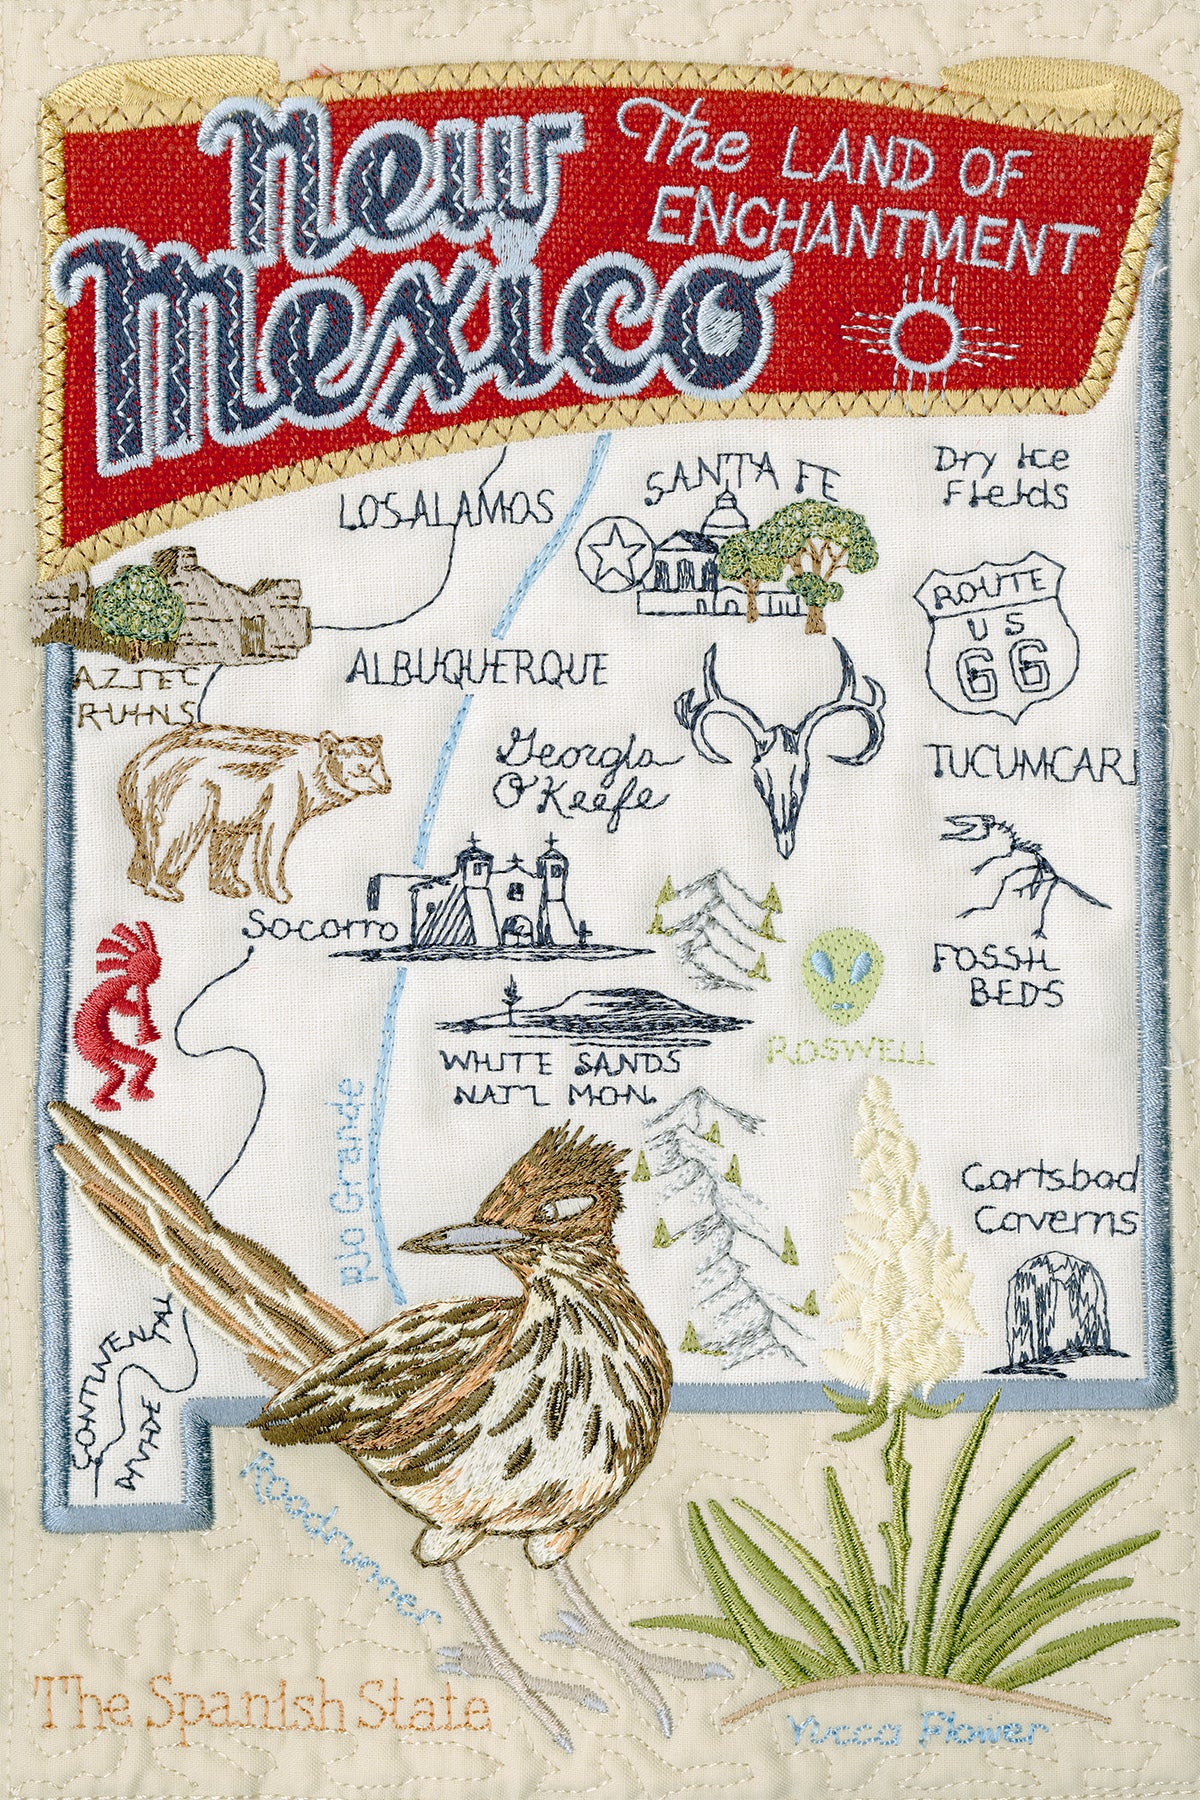 New
Mexico
The LAND OF
ENCHANTMENT
LOS ALAMOS
SANTA FE
Dry Ice
Fields
ROUTE
US
66
AZTEC
RUINS
ALBUQUERQUE
Georgia
O'Keefe
TUCUMCARI
Socorro
FOSSIL
BEDS
WHITE SANDS
NAT'L MON.
ROSWELL
Rio Grande
Carlsbad
Caverns
CONTINENTAL
DIVIDE
Roadrunner
The Spanish State
Yucca Flower